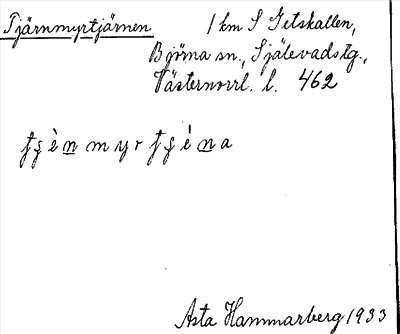 Tjärnmyrtjärnen 1 km S Getskallen,
Björna sn., Själevads tg.,
Västernorrl. l. 462
Asta Hammarberg 1933